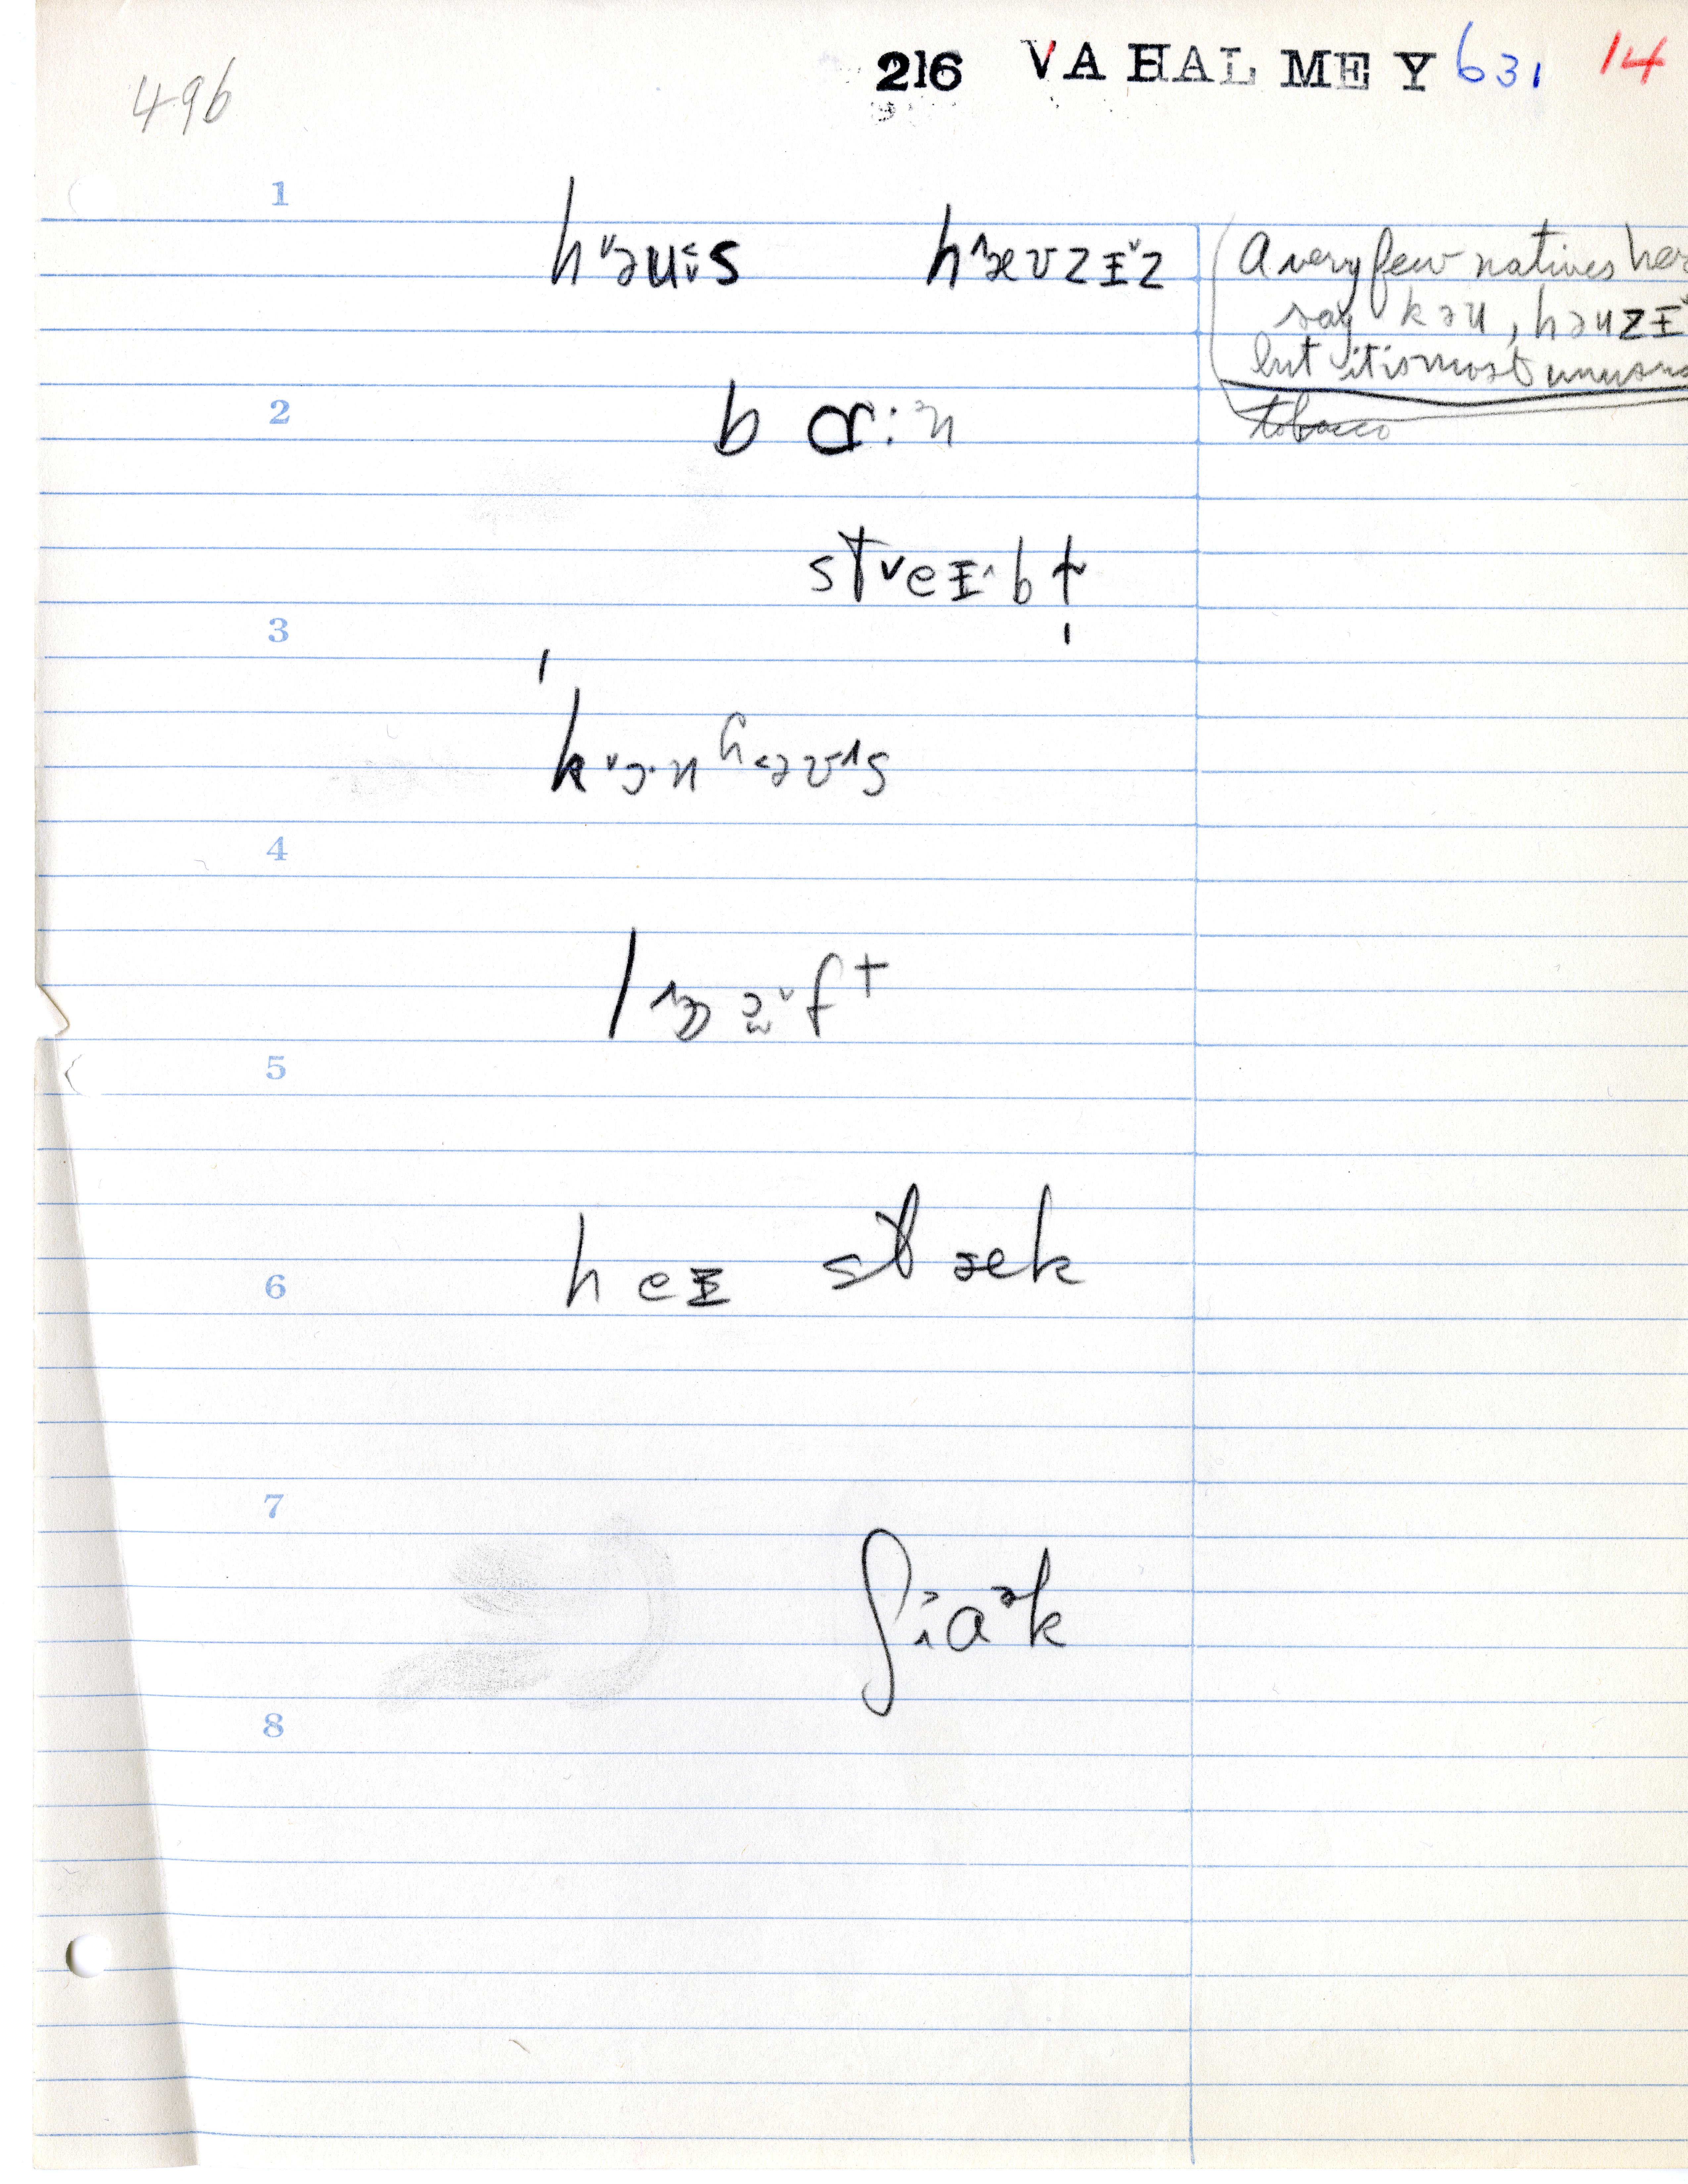 496
216 VA HAL ME Y 631 14
1
h˅əu:s hæʊzɪ˅z
A very few natives her
say kəu, həuzɪ˅
but it is most unusu
2
bɑ:n
tobacco
st˅eɪ^bɫ
3
k˅ɔ·nh<əʊ^s
4
ft
5
heɪ stæk
6
7
ʃiaᵊk
8